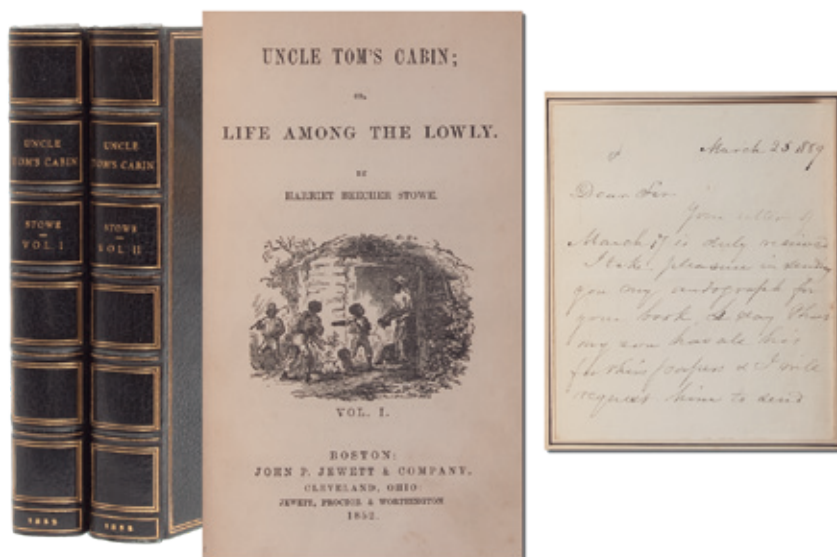 UNCLE
TOM'S CABIN
STOWE
VOL. I
UNCLE
TOM'S CABIN
STOWE
VOL. II
1852
1852
UNCLE TOM'S CABIN;
OR,
LIFE AMONG THE LOWLY.
BY
HARRIET BEECHER STOWE.
VOL. I.
BOSTON:
JOHN P. JEWETT & COMPANY.
CLEVELAND, OHIO:
JEWETT, PROCTOR & WORTHINGTON.
1852.
March 23 1889
Dear Sir
Your letter of
March 17 is duly received
I take pleasure in sending
you my autograph for
your book,
my son
request him to send